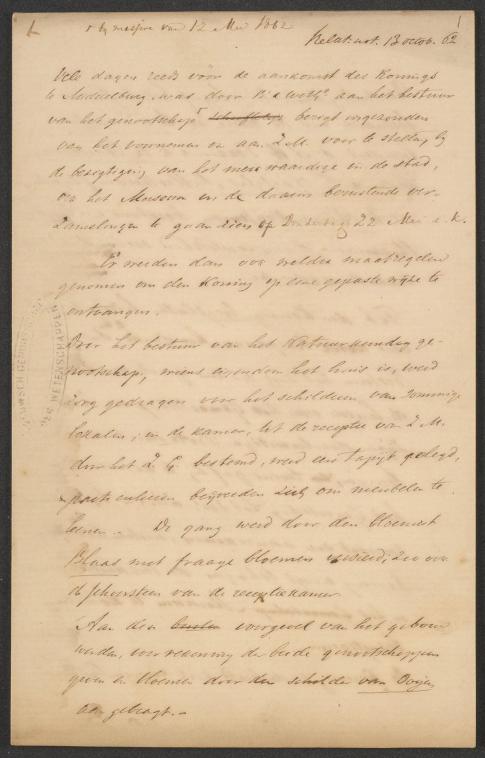 bij missive van 12 Mei 1862
Relat. not. 13 octob. 62
1
Vele dagen reeds vóór de aankomst des Konings
te Middelburg was door B. & Weth. aan het bestuur
van het genootschap berigt ingezonden
van het voornemen om aan Z.M. voor te stellen, bij
de bezigtiging van het merkwaardige in de stad,
ook het Museum en de daarin bewaarde ver-
zamelingen te gaan zien op Donderdag 22 Mei e.k.
Er werden dan ook weldra maatregelen
genomen om den Koning op eene gepaste wijze te
ontvangen.
Door het bestuur van het Natuurkundig ge-
nootschap, wiens eigendom het huis is, werd
zorg gedragen voor het schilderen van sommige
lokalen; in de kamer, tot de receptie van Z.M.
door het Z.G. bestemd, werd een tapijt gelegd,
particulieren beijverden zich om meubelen te
leenen. De gang werd door den bloemist
Blaas met fraaije bloemen versierd; zoo ook
de schoorsteen van de receptiekamer.
Aan den buiten voorgevel van het gebouw
werden, voor rekening der beide genootschappen
en bloemen door den schilder van Ooijen
aangebragt.
ZEEUWSCH GENOOTSCHAP
DER WETENSCHAPPEN